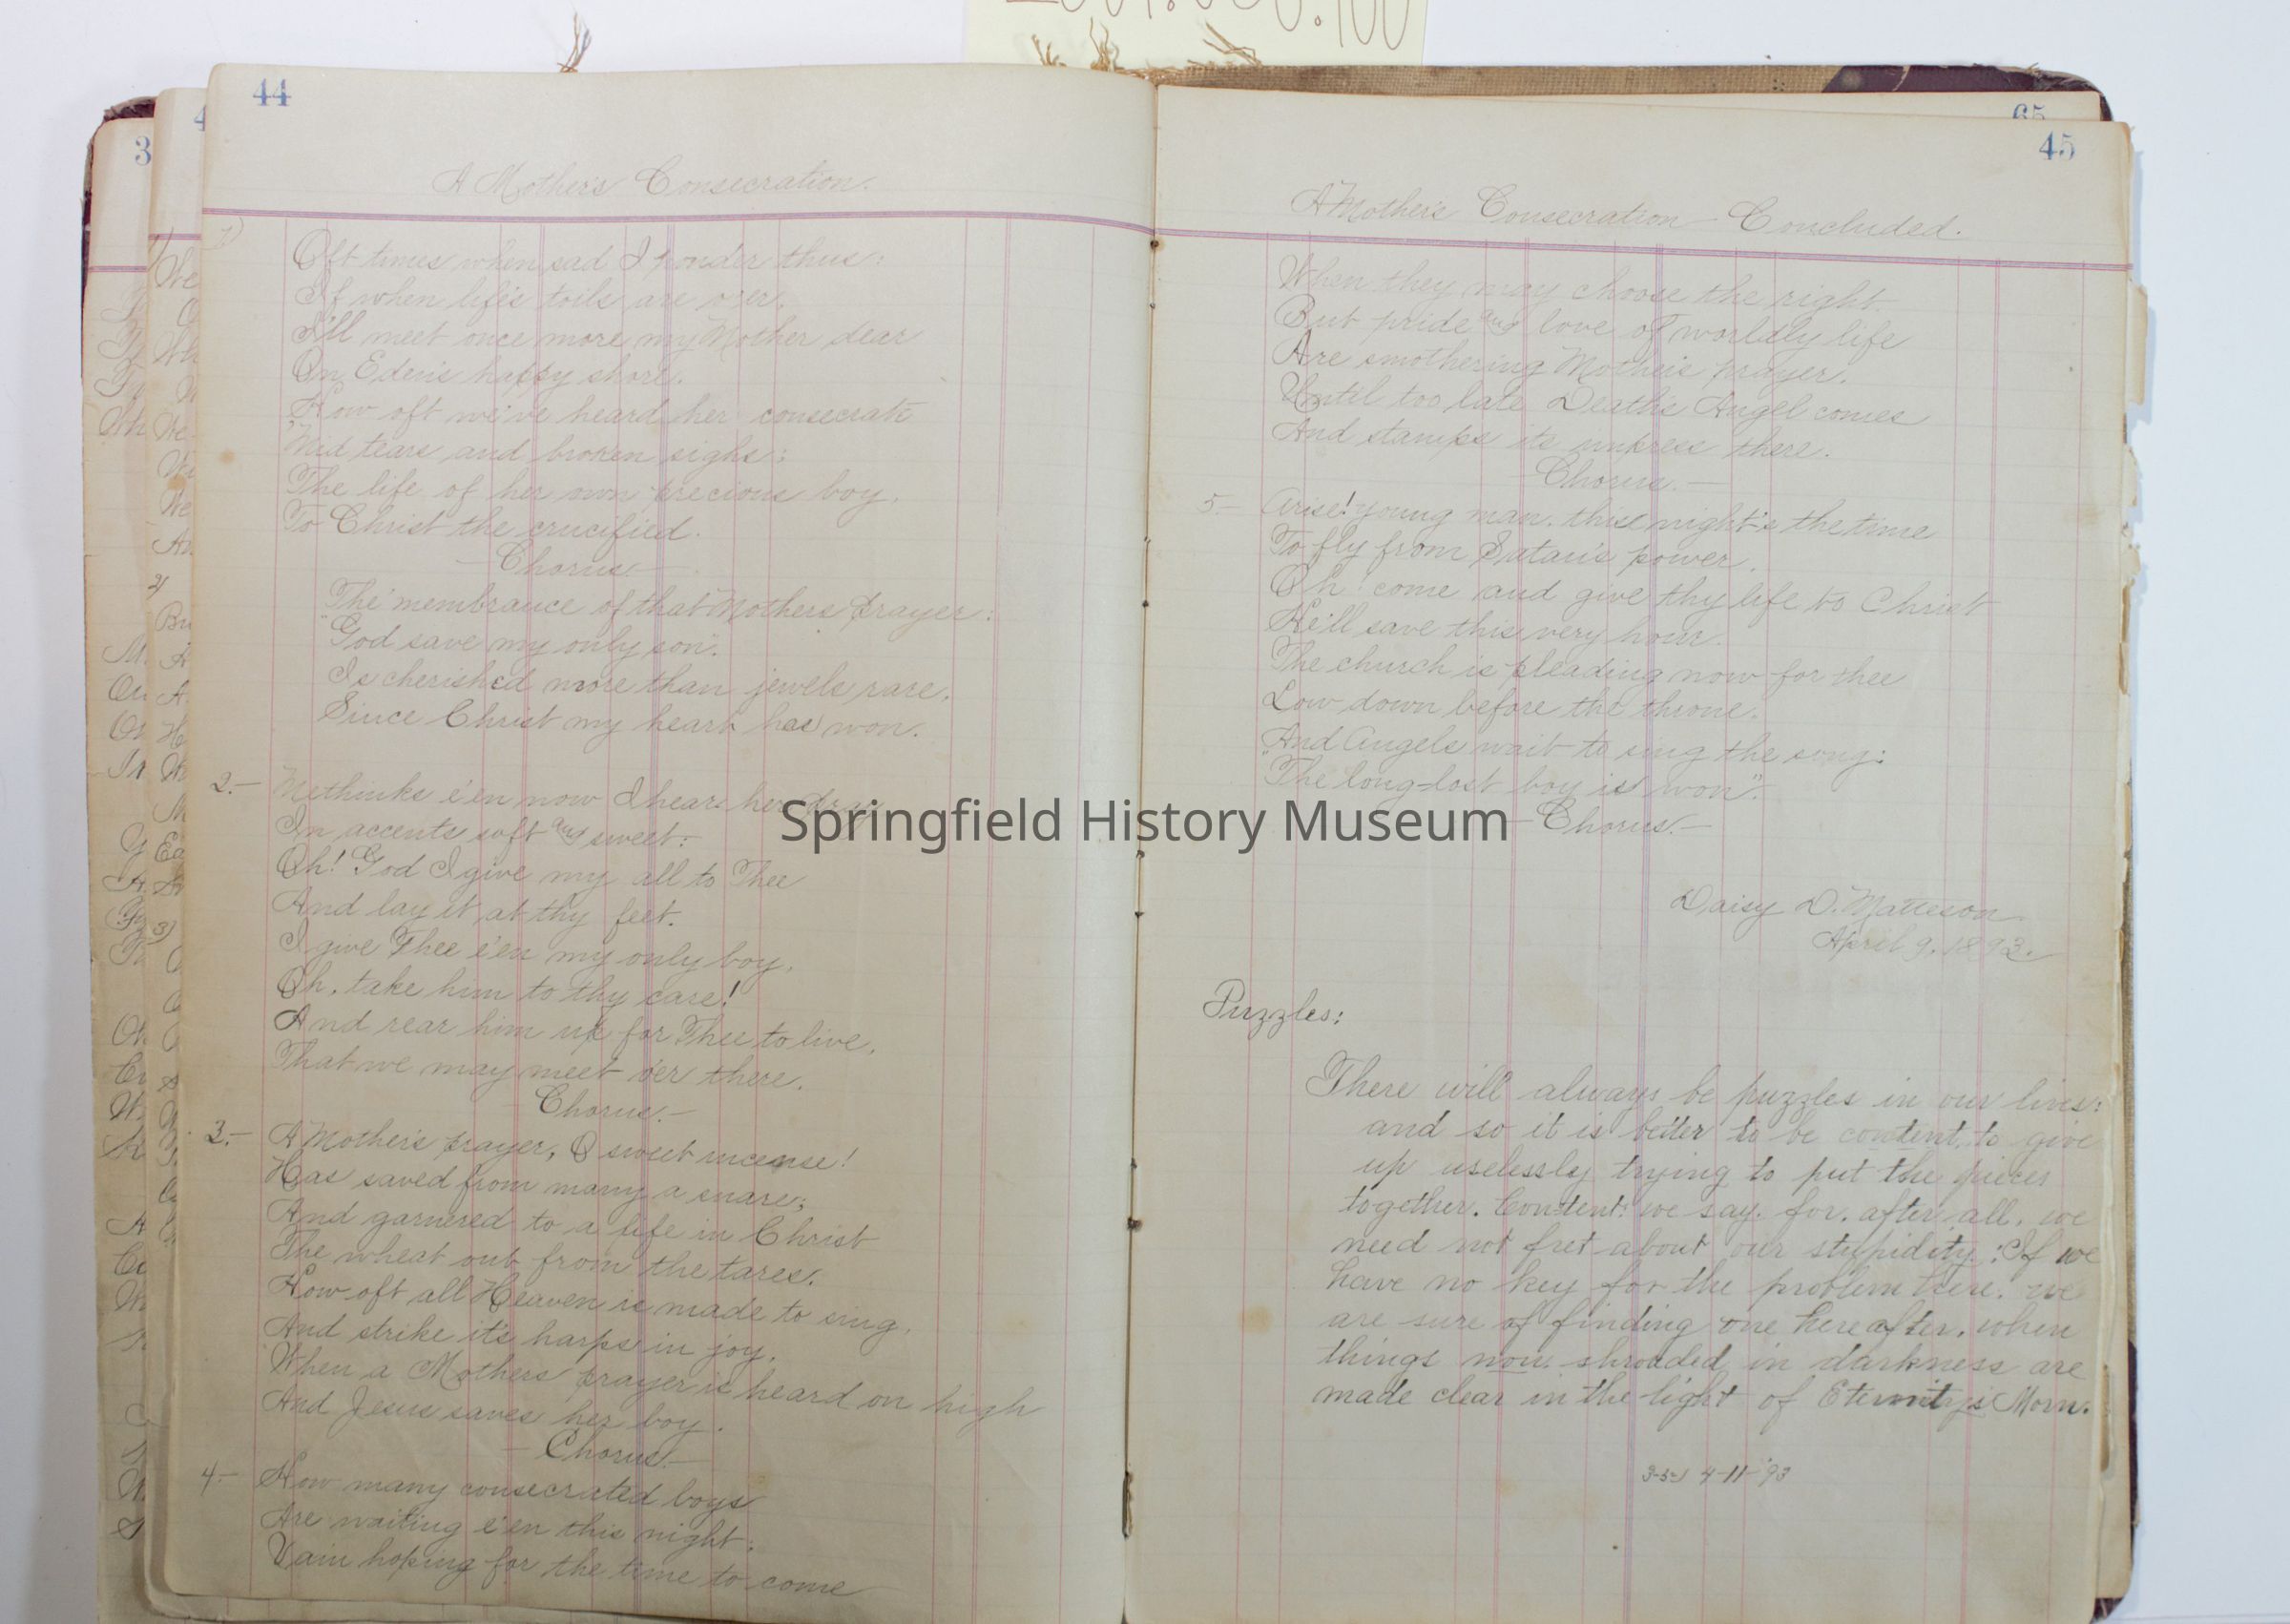 44
A Mother's Consecration.
1)
Oft times when sad I ponder thus:
If when life's toils are o'er.
I'll meet once more my Mother dear
On Eden's happy shore.
How oft we've heard her consecrate
'Mid tears and broken sighs:
The life of her own precious boy.
To Christ the crucified.
— Chorus —
The 'membrance of that Mothers prayer:
"God save my only son".
Is cherished more than jewels rare.
Since Christ my heart has won.
2.— Methinks e'en now I hear her
In accents soft and sweet:
Oh! God I give my all to Thee
And lay it at thy feet.
I give Thee e'en my only boy.
Oh, take him to thy care!
And rear him up for Thee to live.
That we may meet o'er there.
Chorus.—
3.— A Mother's prayer, O sweet incense!
Has saved from many a snare;
And garnered to a life in Christ
The wheat out from the tares.
How oft all Heaven is made to sing.
And strike it's harps in joy.
When a Mothers prayer is heard on high
And Jesus saves her boy.
— Chorus.—
4.— How many consecrated boys
Are waiting e'en this night:
Vain hoping for the time to come
65
45
A Mother's Consecration — Concluded.
When they may choose the right.
But pride and love of worldly life
Are smothering Mother's prayer.
Until too late Death's Angel comes
And stamps its impress there.
— Chorus.—
5.— Arise! young man. this night's the time
To fly from Satan's power.
Oh! come and give thy life to Christ
He'll save this very hour.
The church is pleading now for thee
Low down before the throne.
And Angels wait to sing the song:
"The long-lost boy is won".
— Chorus.—
Daisy D. Matteson
April 9, 1893.
Puzzles:
There will always be puzzles in our lives:
and so it is better to be content, to give
up uselessly trying to put the pieces
together. Content! we say. for. after all. we
need not fret about our stupidity: If we
have no key for the problem here. we
are sure of finding one hereafter. when
things now shrouded in darkness are
made clear in the light of Eternity's Morn.
4-11-'93
Springfield History Museum